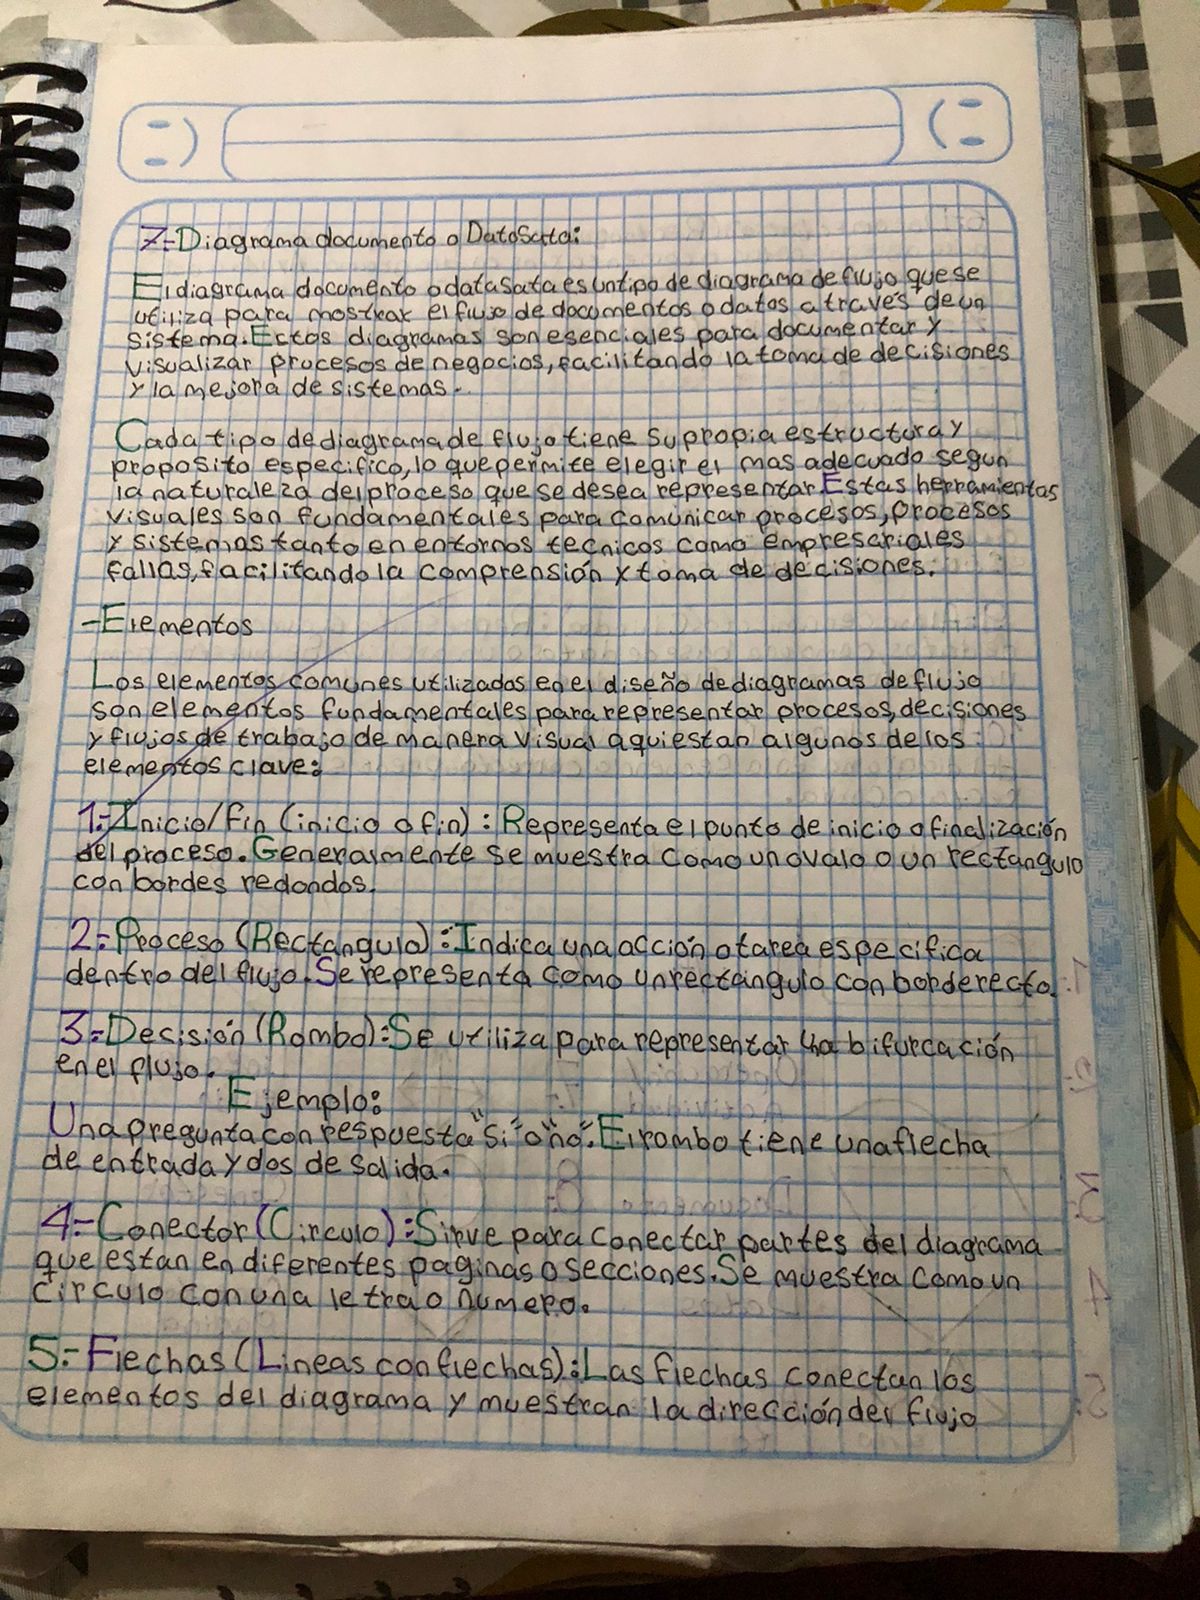 7-Diagrama documento o DatoSata:
El diagrama documento o data Sata es un tipo de diagrama de flujo que se
utiliza para mostrar el flujo de documentos o datos a través de un
sistema. Ectos diagramas son esenciales para documentar y
visualizar procesos de negocios, facilitando la toma de decisiones
y la mejora de sistemas.
Cada tipo de diagrama de flujo tiene su propia estructura y
proposito especifico, lo que permite elegir el mas adecuado segun
la naturaleza del proceso que se desea representar. Estas herramientas
visuales son fundamentales para comunicar procesos, procesos
y sistemas tanto en entornos tecnicos como empresariales
fallas, facilitando la comprensión y toma de decisiones.
-Elementos
Los elementos comunes utilizados en el diseño de diagramas de flujo
son elementos fundamentales para representar procesos, decisiones
y flujos de trabajo de manera visual aqui estan algunos de los
elementos clave:
1.-Inicio/Fin (inicio o fin): Representa el punto de inicio o finalización
del proceso. Generalmente se muestra como un ovalo o un rectangulo
con bordes redondos.
2.-Proceso (Rectangulo): Indica una acción o tarea especifica
dentro del flujo. Se representa como un rectángulo con borde recto.
3-Decisión (Rombo): Se utiliza para representar una bifurcación
en el flujo.
Ejemplo:
Una pregunta con respuesta "si" o "no". El rombo tiene una flecha
de entrada y dos de salida.
4-Conector (Circulo): Sirve para conectar partes del diagrama
que estan en diferentes paginas o secciones. Se muestra como un
circulo con una letra o numero.
5.-Flechas (Lineas con flechas): Las flechas conectan los
elementos del diagrama y muestran la dirección del flujo